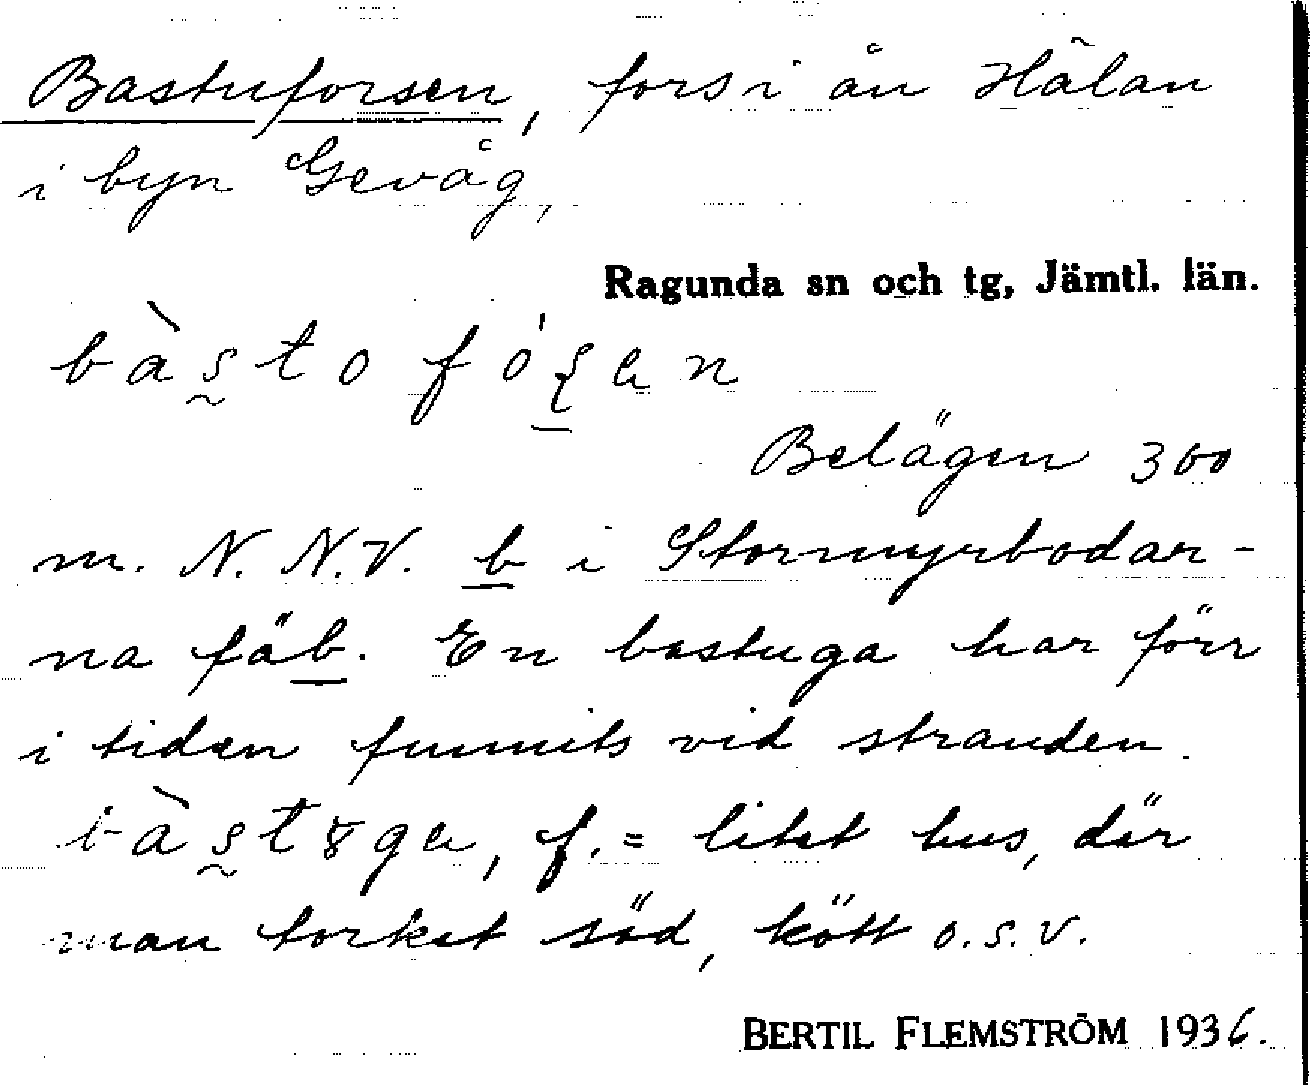 Bastuforsen, fors i ån Hålan
i byn Gevåg,
Ragunda sn och tg, Jämtl. län.
bàstofó
Belägen 300
m. N. N.V. b i Stormyrbodar-
na fäb. En bastuga har förr
i tiden funnits vid stranden.
f. = litet hus, där
man torkat säd, kött o.s.v.
BERTIL FLEMSTRÖM 1936.